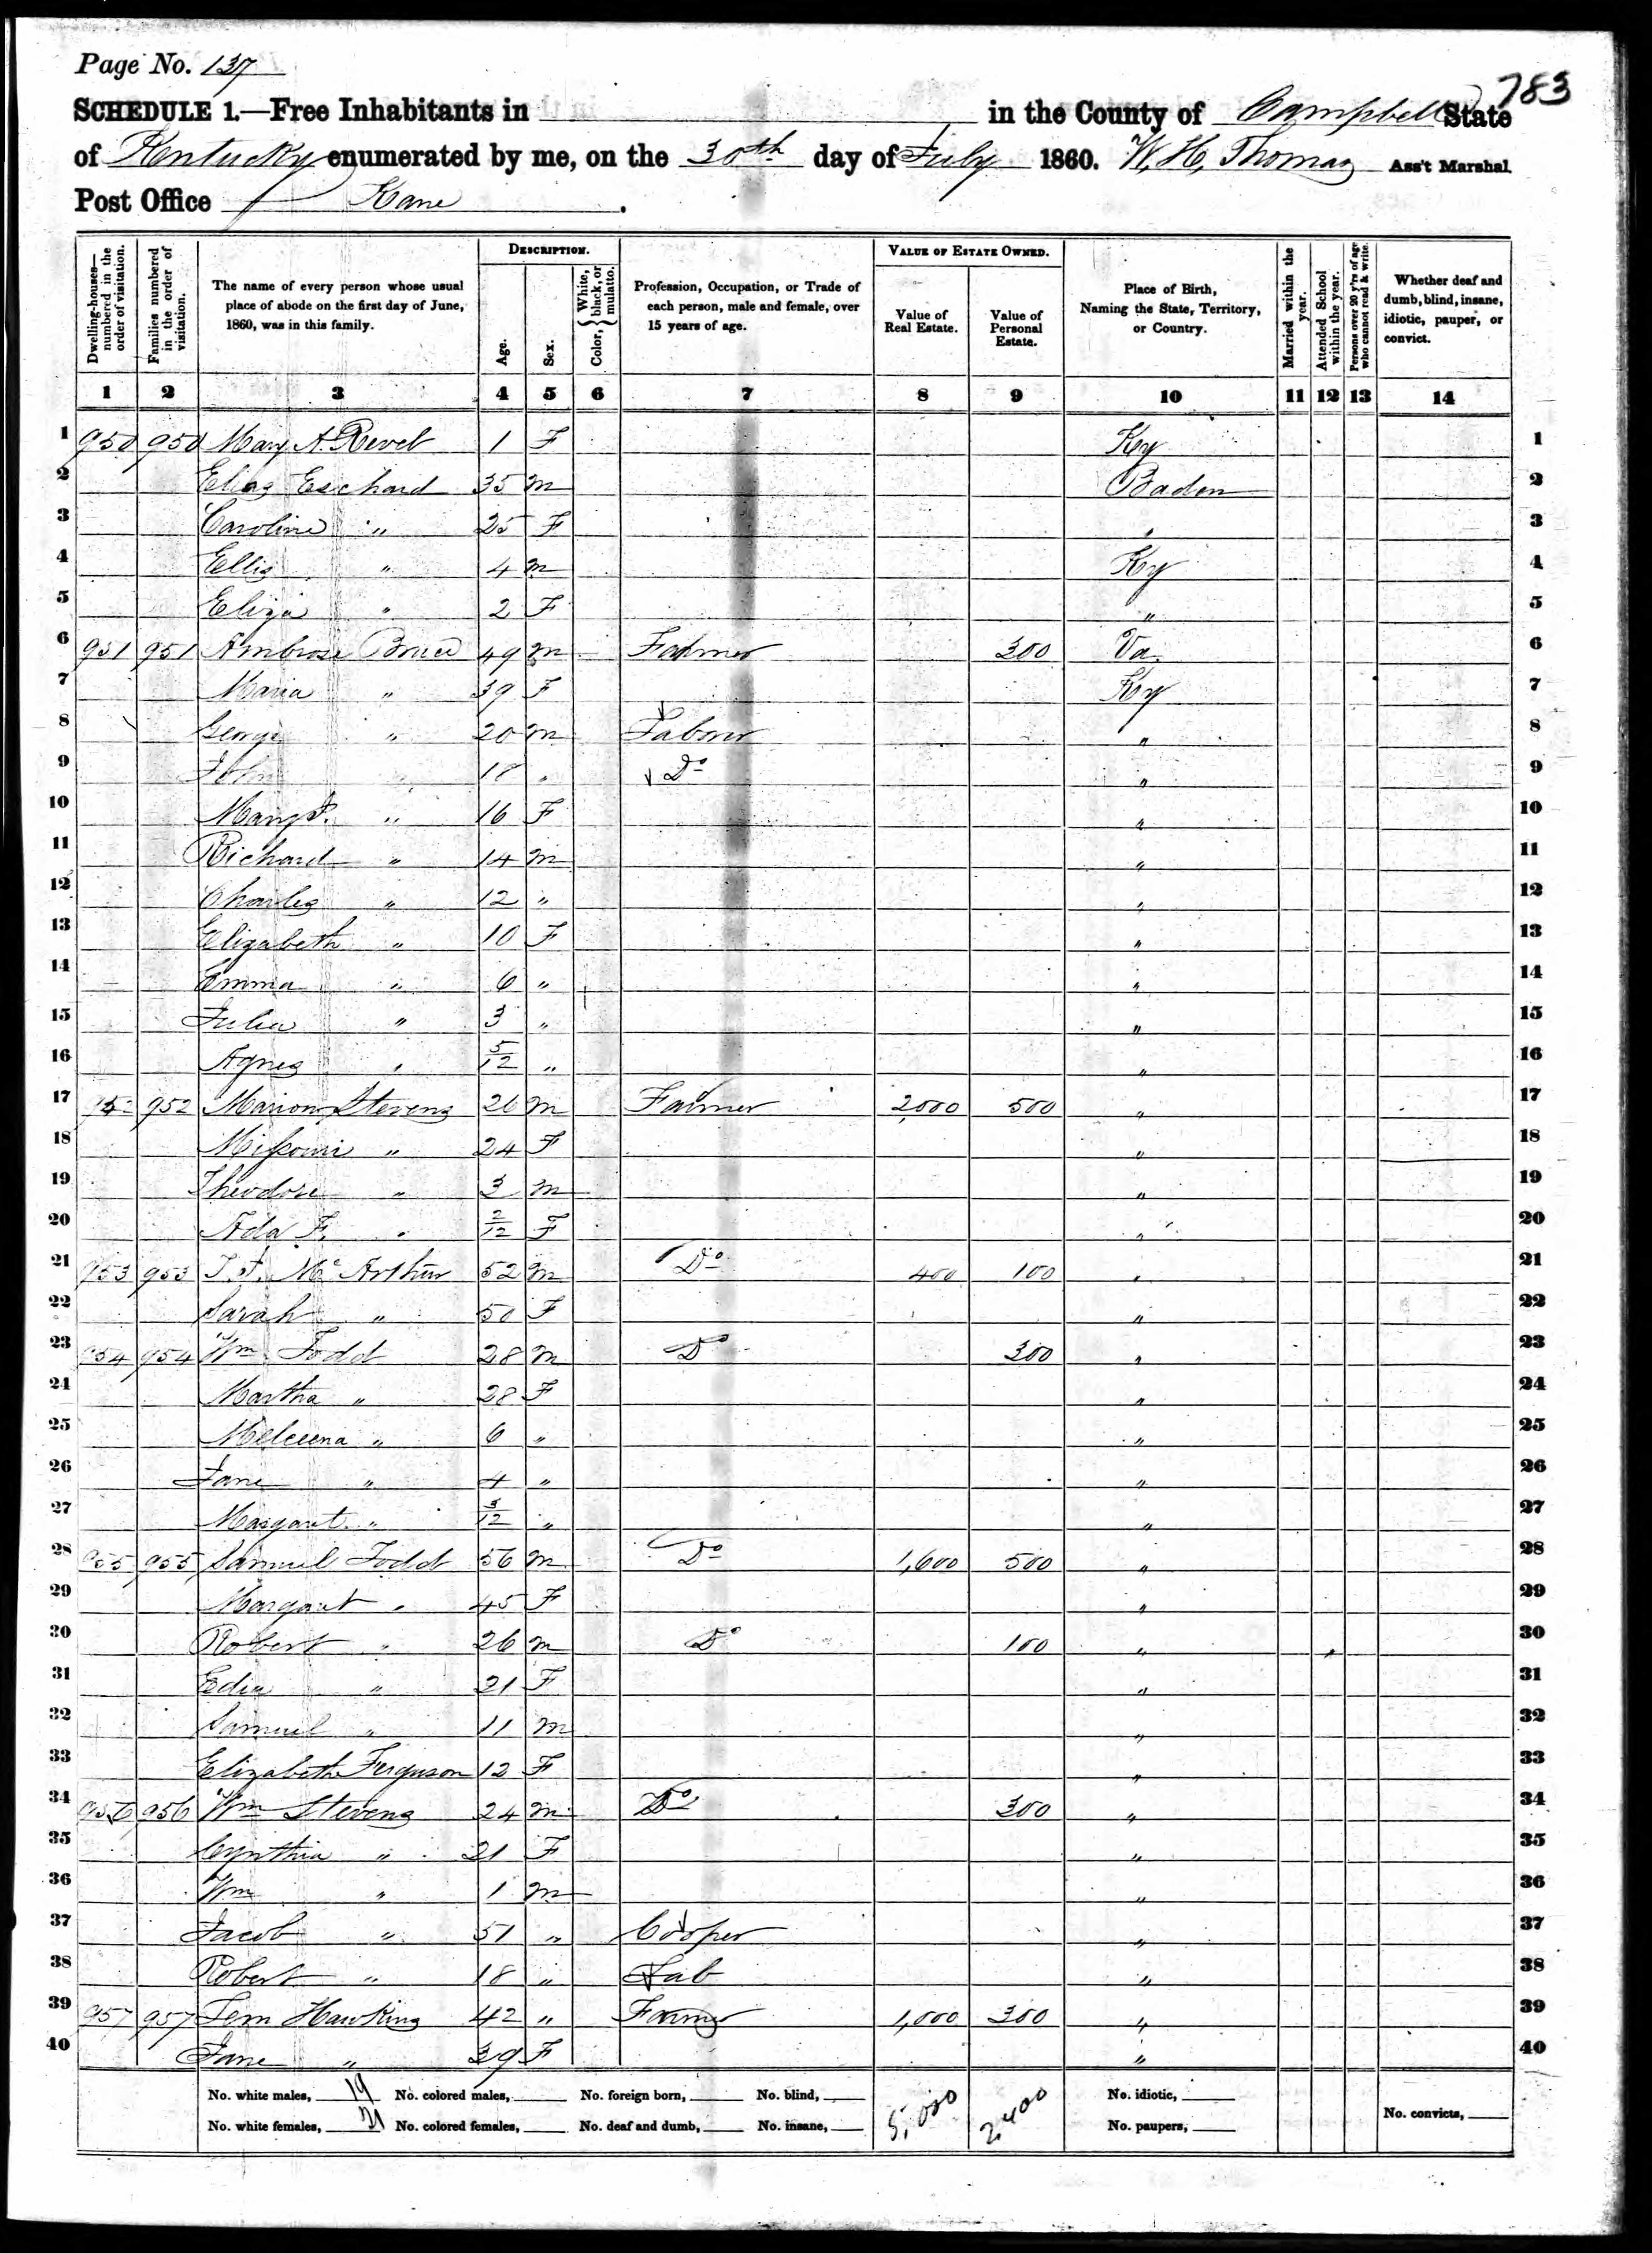 Page No. 137
783
SCHEDULE 1.—Free Inhabitants in in the County of Campbell State
of Kentucky enumerated by me, on the 30th day of July 1860. W. H. Thomas Ass't Marshal.
Post Office Kane .
Dwelling-houses—numbered in the order of visitation. Families numbered in the order of visitation. The name of every person whose usual place of abode on the first day of June, 1860, was in this family. Description. Age. Sex. Color, { White, black, or mulatto. Profession, Occupation, or Trade of each person, male and female, over 15 years of age. Value of Estate Owned. Value of Real Estate. Value of Personal Estate. Place of Birth, Naming the State, Territory, or Country. Married within the year. Attended School within the year. Persons over 20 y'rs of age who cannot read & write. Whether deaf and dumb, blind, insane, idiotic, pauper, or convict.
1 2 3 4 5 6 7 8 9 10 11 12 13 14
1 950 950 Mary A. 1 F Ky 1
2 Elias Eschard 35 m Baden 2
3 Caroline " 25 F " 3
4 Ellis " 4 m Ky 4
5 Eliza " 2 F " 5
6 951 951 Ambrose Bruce 49 m Farmer 300 Va. 6
7 Maria " 39 F Ky 7
8 George " 20 m Laborer " 8
9 John " 18 " Do " 9
10 " 16 F " 10
11 Richard " 14 m " 11
12 Charles " 12 " " 12
13 Elizabeth " 10 F " 13
14 Emma " 6 " " 14
15 Julia " 3 " " 15
16 Agnes " 5/12 " " 16
17 952 952 Marion Stevens 26 m Farmer 2,000 500 " 17
18 Missouri " 24 F " 18
19 Theodore " 3 m " 19
20 Ada F. " 2/12 F " 20
21 953 953 McArthur 52 m Do 400 100 " 21
22 Sarah " 50 F " 22
23 954 954 Wm Todd 28 m Do 300 " 23
24 Martha " 28 F " 24
25 " 6 " " 25
26 Jane " 4 " " 26
27 Margaret " 3/12 " " 27
28 955 955 Samuel Todd 56 m Do 1,600 500 " 28
29 Margaret " 45 F " 29
30 Robert " 26 m Do 100 " 30
31 " 21 F " 31
32 Samuel " 11 m " 32
33 Elizabeth Ferguson 12 F " 33
34 956 956 Wm Stevens 24 m Do 300 " 34
35 Cynthia " 21 F " 35
36 Wm " 1 m " 36
37 Jacob " 51 " Cooper " 37
38 Robert " 18 " Lab " 38
39 957 957 Lem Hawkins 42 " Farmer 1,000 300 " 39
40 Jane " 39 F " 40
No. white males, 19 No. colored males, No. foreign born, No. blind, 5,000 2,400 No. idiotic,
No. white females, 21 No. colored females, No. deaf and dumb, No. insane, No. paupers, No. convicts,